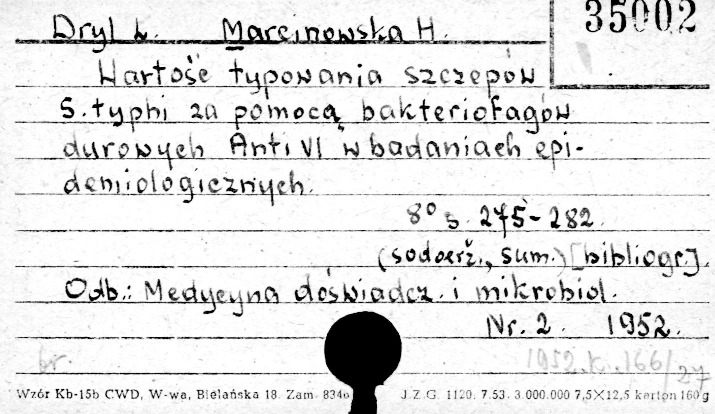 35002
Dryl L. Marcinowska H.
Wartość typowania szczepów
S. typhi za pomocą bakteriofagów
durowych Anti VI w badaniach epi-
demiologicznych.
8° s. 275-282.
(sodoerž., sum.) [bibliogr].
Odb.: Medycyna doświadcz. i mikrobiol.
Nr. 2. 1952.
br. 1952.K.166/27
Wzór Kb-15b CWD, W-wa, Bielańska 18. Zam. 834 J.Z.G. 1120. 7.53. 3.000.000 7,5×12,5 karton 160 g